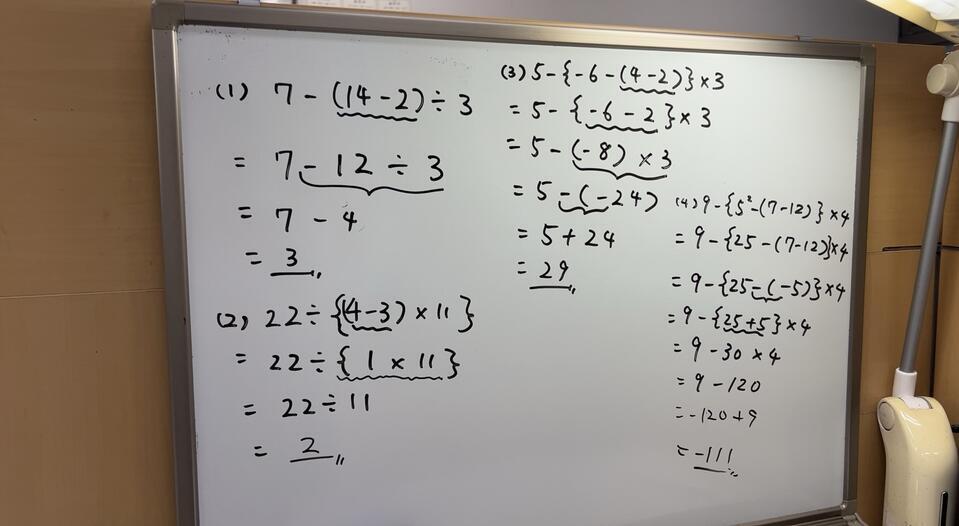 (1) 7-(14-2)÷3
= 7-12÷3
= 7-4
= 3
(2) 22÷{(4-3)×11}
= 22÷{1×11}
= 22÷11
= 2
(3) 5-{-6-(4-2)}×3
= 5-{-6-2}×3
= 5-(-8)×3
= 5-(-24)
= 5+24
= 29
(4) 9-{5²-(7-12)}×4
= 9-{25-(7-12)}×4
= 9-{25-(-5)}×4
= 9-{25+5}×4
= 9-30×4
= 9-120
= -120+9
= -111